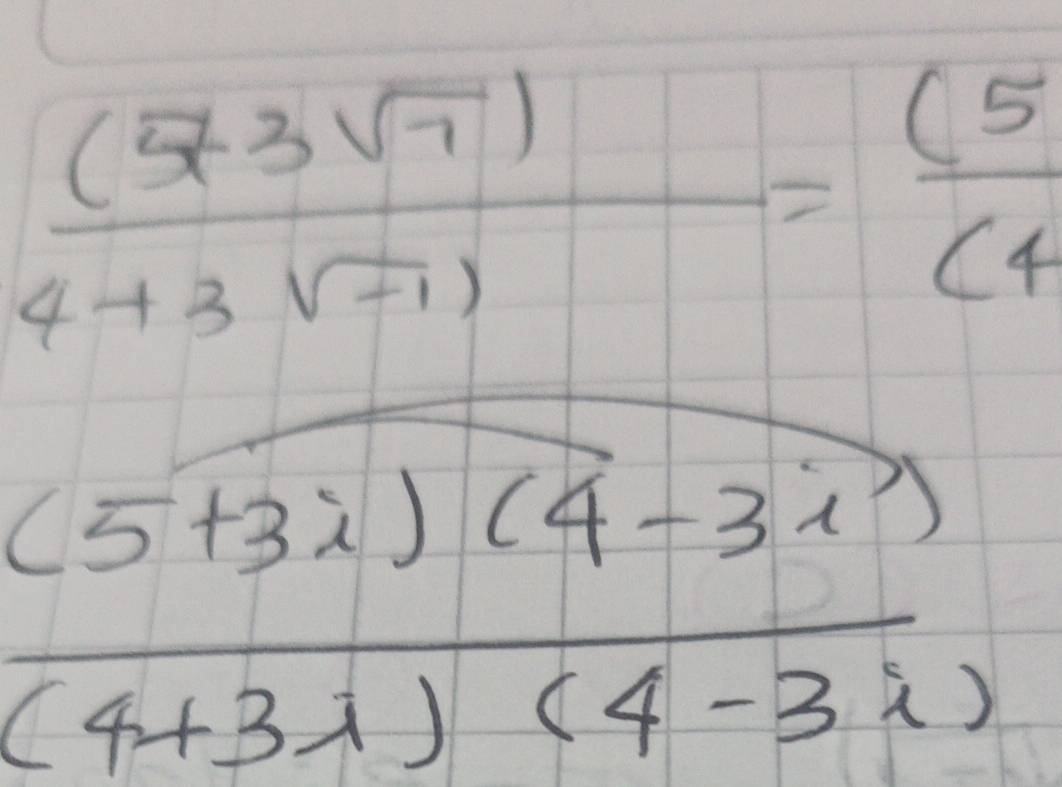 (5+3√-1) / 4+3√-1) = (5 / (4
(5+3i)(4-3i) / (4+3i)(4-3i)